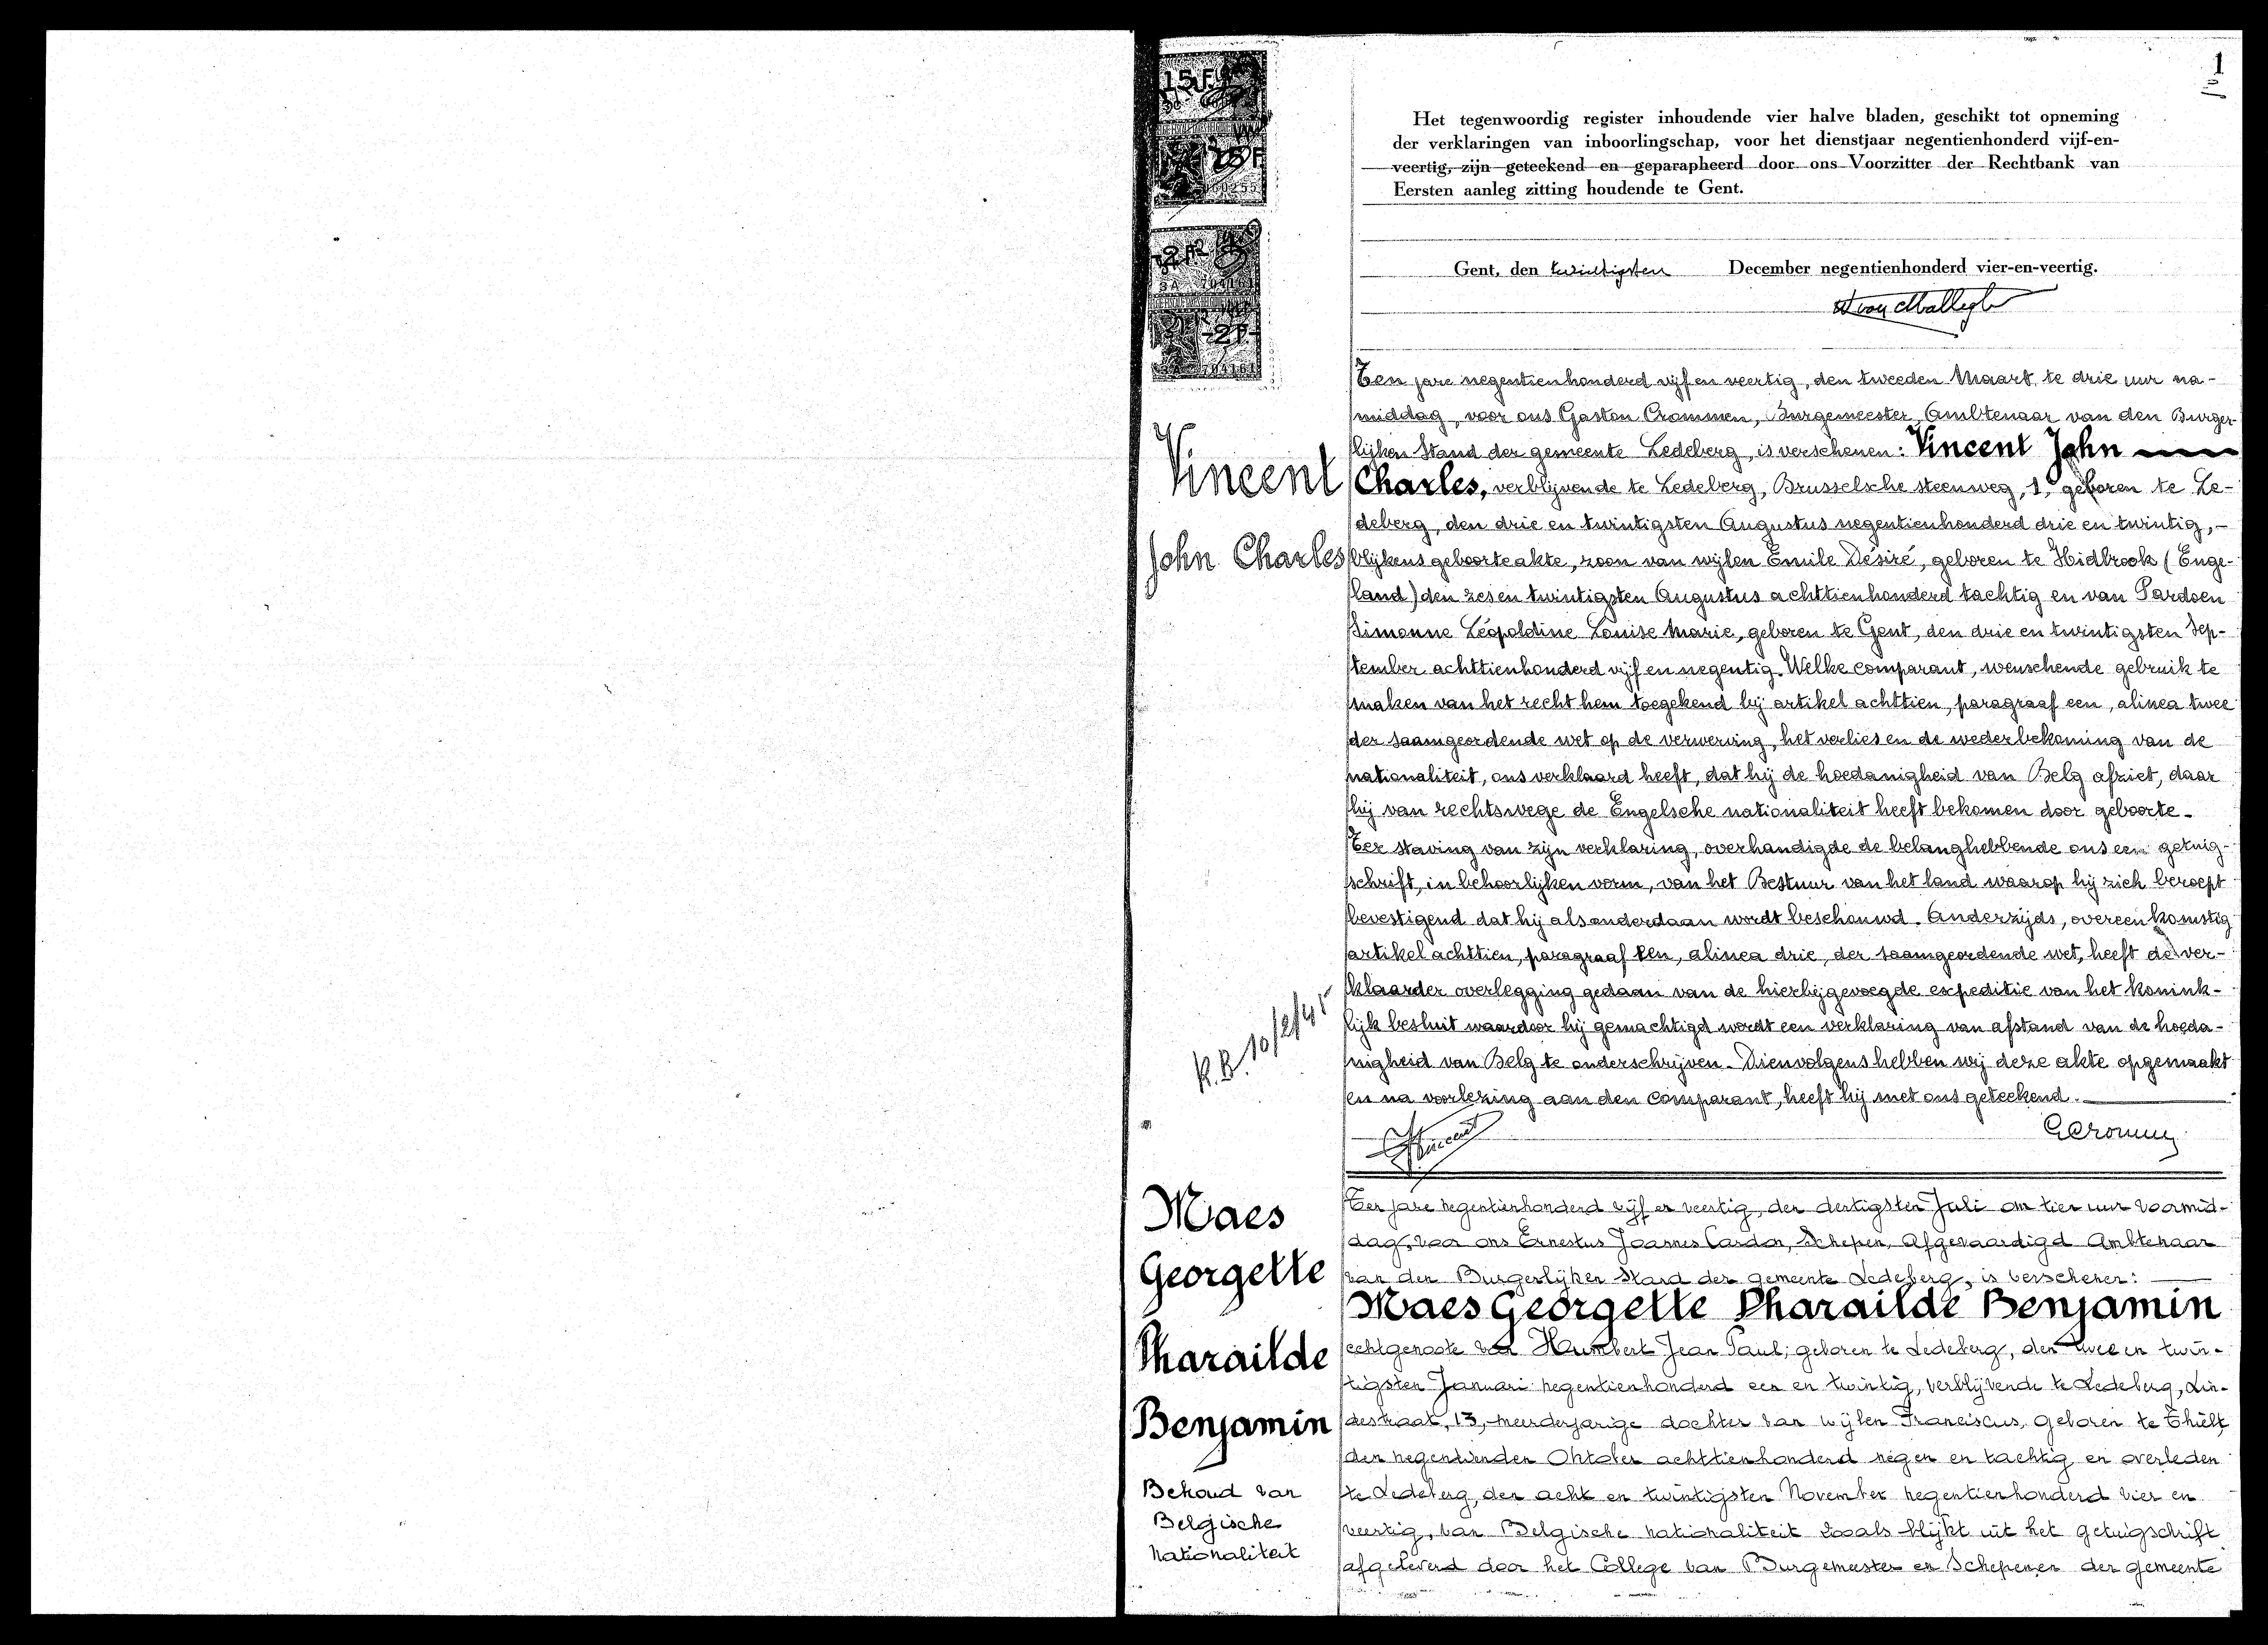 1
15 F
15 F
2 F
2 F
Het tegenwoordig register inhoudende vier halve bladen, geschikt tot opneming
der verklaringen van inboorlingschap, voor het dienstjaar negentienhonderd vijf-en-
veertig, zijn geteekend en geparapheerd door ons Voorzitter der Rechtbank van
Eersten aanleg zitting houdende te Gent.
Gent, den twintigsten December negentienhonderd vier-en-veertig.
Vincent
John Charles
Ten jare negentienhonderd vijf en veertig, den tweeden Maart, te drie uur na-
middag, voor ons Gaston Crommen, Burgemeester, Ambtenaar van den Burger-
lijken Stand der gemeente Ledeberg, is verschenen: Vincent John
Charles, verblijvende te Ledeberg, Brusselsche steenweg, 1, geboren te Le-
deberg, den drie en twintigsten Augustus negentienhonderd drie en twintig,-
blijkens geboorteakte, zoon van wijlen Emile Désiré, geboren te Kidbrook (Enge-
land) den zes en twintigsten Augustus achttienhonderd tachtig en van Pardoen
Simonne Léopoldine Louise Marie, geboren te Gent, den drie en twintigsten Sep-
tember achttienhonderd vijf en negentig. Welke comparant, wenschende gebruik te
maken van het recht hem toegekend bij artikel achttien, paragraaf een, alinea twee
der saamgeordende wet op de verwerving, het verlies en de wederbekoming van de
nationaliteit, ons verklaard heeft, dat hij de hoedanigheid van Belg afziet, daar
hij van rechtswege de Engelsche nationaliteit heeft bekomen door geboorte.
Ter staving van zijn verklaring, overhandigde de belanghebbende ons een getuig-
schrift, in behoorlijken vorm, van het Bestuur van het land waarop hij zich beroept
bevestigend dat hij als onderdaan wordt beschouwd. Anderzijds, overeenkomstig
artikel achttien, paragraaf een, alinea drie, der saamgeordende wet, heeft de ver-
klaarder overlegging gedaan van de hierbijgevoegde expeditie van het konink-
lijk besluit waardoor hij gemachtigd wordt een verklaring van afstand van de hoeda-
nigheid van Belg te onderschrijven. Dienvolgens hebben wij deze akte opgemaakt
en na voorlezing aan den comparant, heeft hij met ons geteekend.
K.B. 10/2/45
Maes
Georgette
Pharailde
Benjamin
Behoud van
Belgische
nationaliteit
Ten jare negentienhonderd vijf en veertig, den dertigsten Juli om tien uur voormid-
dag, voor ons Ernestus Joannes Cardon, Schepen, Afgevaardigd Ambtenaar
van den Burgerlijken Stand der gemeente Ledeberg, is verschenen:
Maes Georgette Pharailde Benjamin
echtgenoote van Humbert Jean Paul; geboren te Ledeberg, den twee en twin-
tigsten Januari negentienhonderd een en twintig, verblijvende te Ledeberg, Lin-
destraat, 13, meerderjarige dochter van wijlen Franciscus, geboren te Thielt,
den negentienden Oktober achttienhonderd negen en tachtig en overleden
te Ledeberg, den acht en twintigsten November negentienhonderd vier en
veertig, van Belgische nationaliteit zooals blijkt uit het getuigschrift
afgeleverd door het College van Burgemeester en Schepenen der gemeente